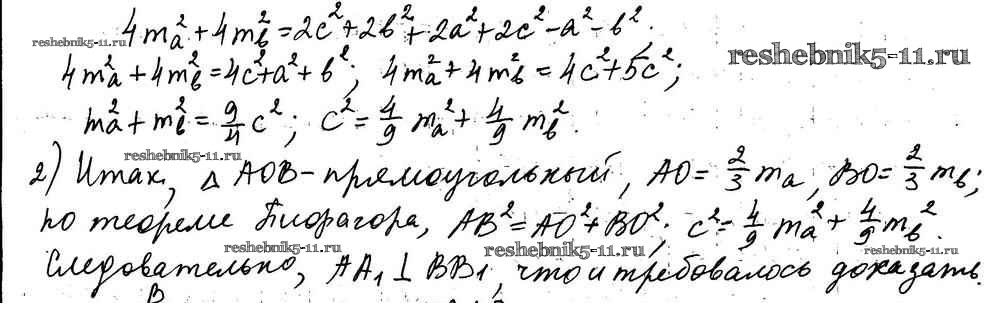 4m_a^2+4m_b^2=2c^2+2b^2+2a^2+2c^2-a^2-b^2.
reshebnik5-11.ru
reshebnik5-11.ru
4m_a^2+4m_b^2=4c^2+a^2+b^2; 4m_a^2+4m_b^2=4c^2+5c^2;
m_a^2+m_b^2=9/4 c^2; c^2=4/9 m_a^2+4/9 m_b^2.
reshebnik5-11.ru
2) Итак, △AOB-прямоугольный, AO=2/3 m_a, BO=2/3 m_b;
по теореме Пифагора, AB^2=AO^2+BO^2; c^2=4/9 m_a^2+4/9 m_b^2.
reshebnik5-11.ru
reshebnik5-11.ru
reshebnik5-11.ru
Следовательно, AA_1⊥BB_1, что и требовалось доказать.
B